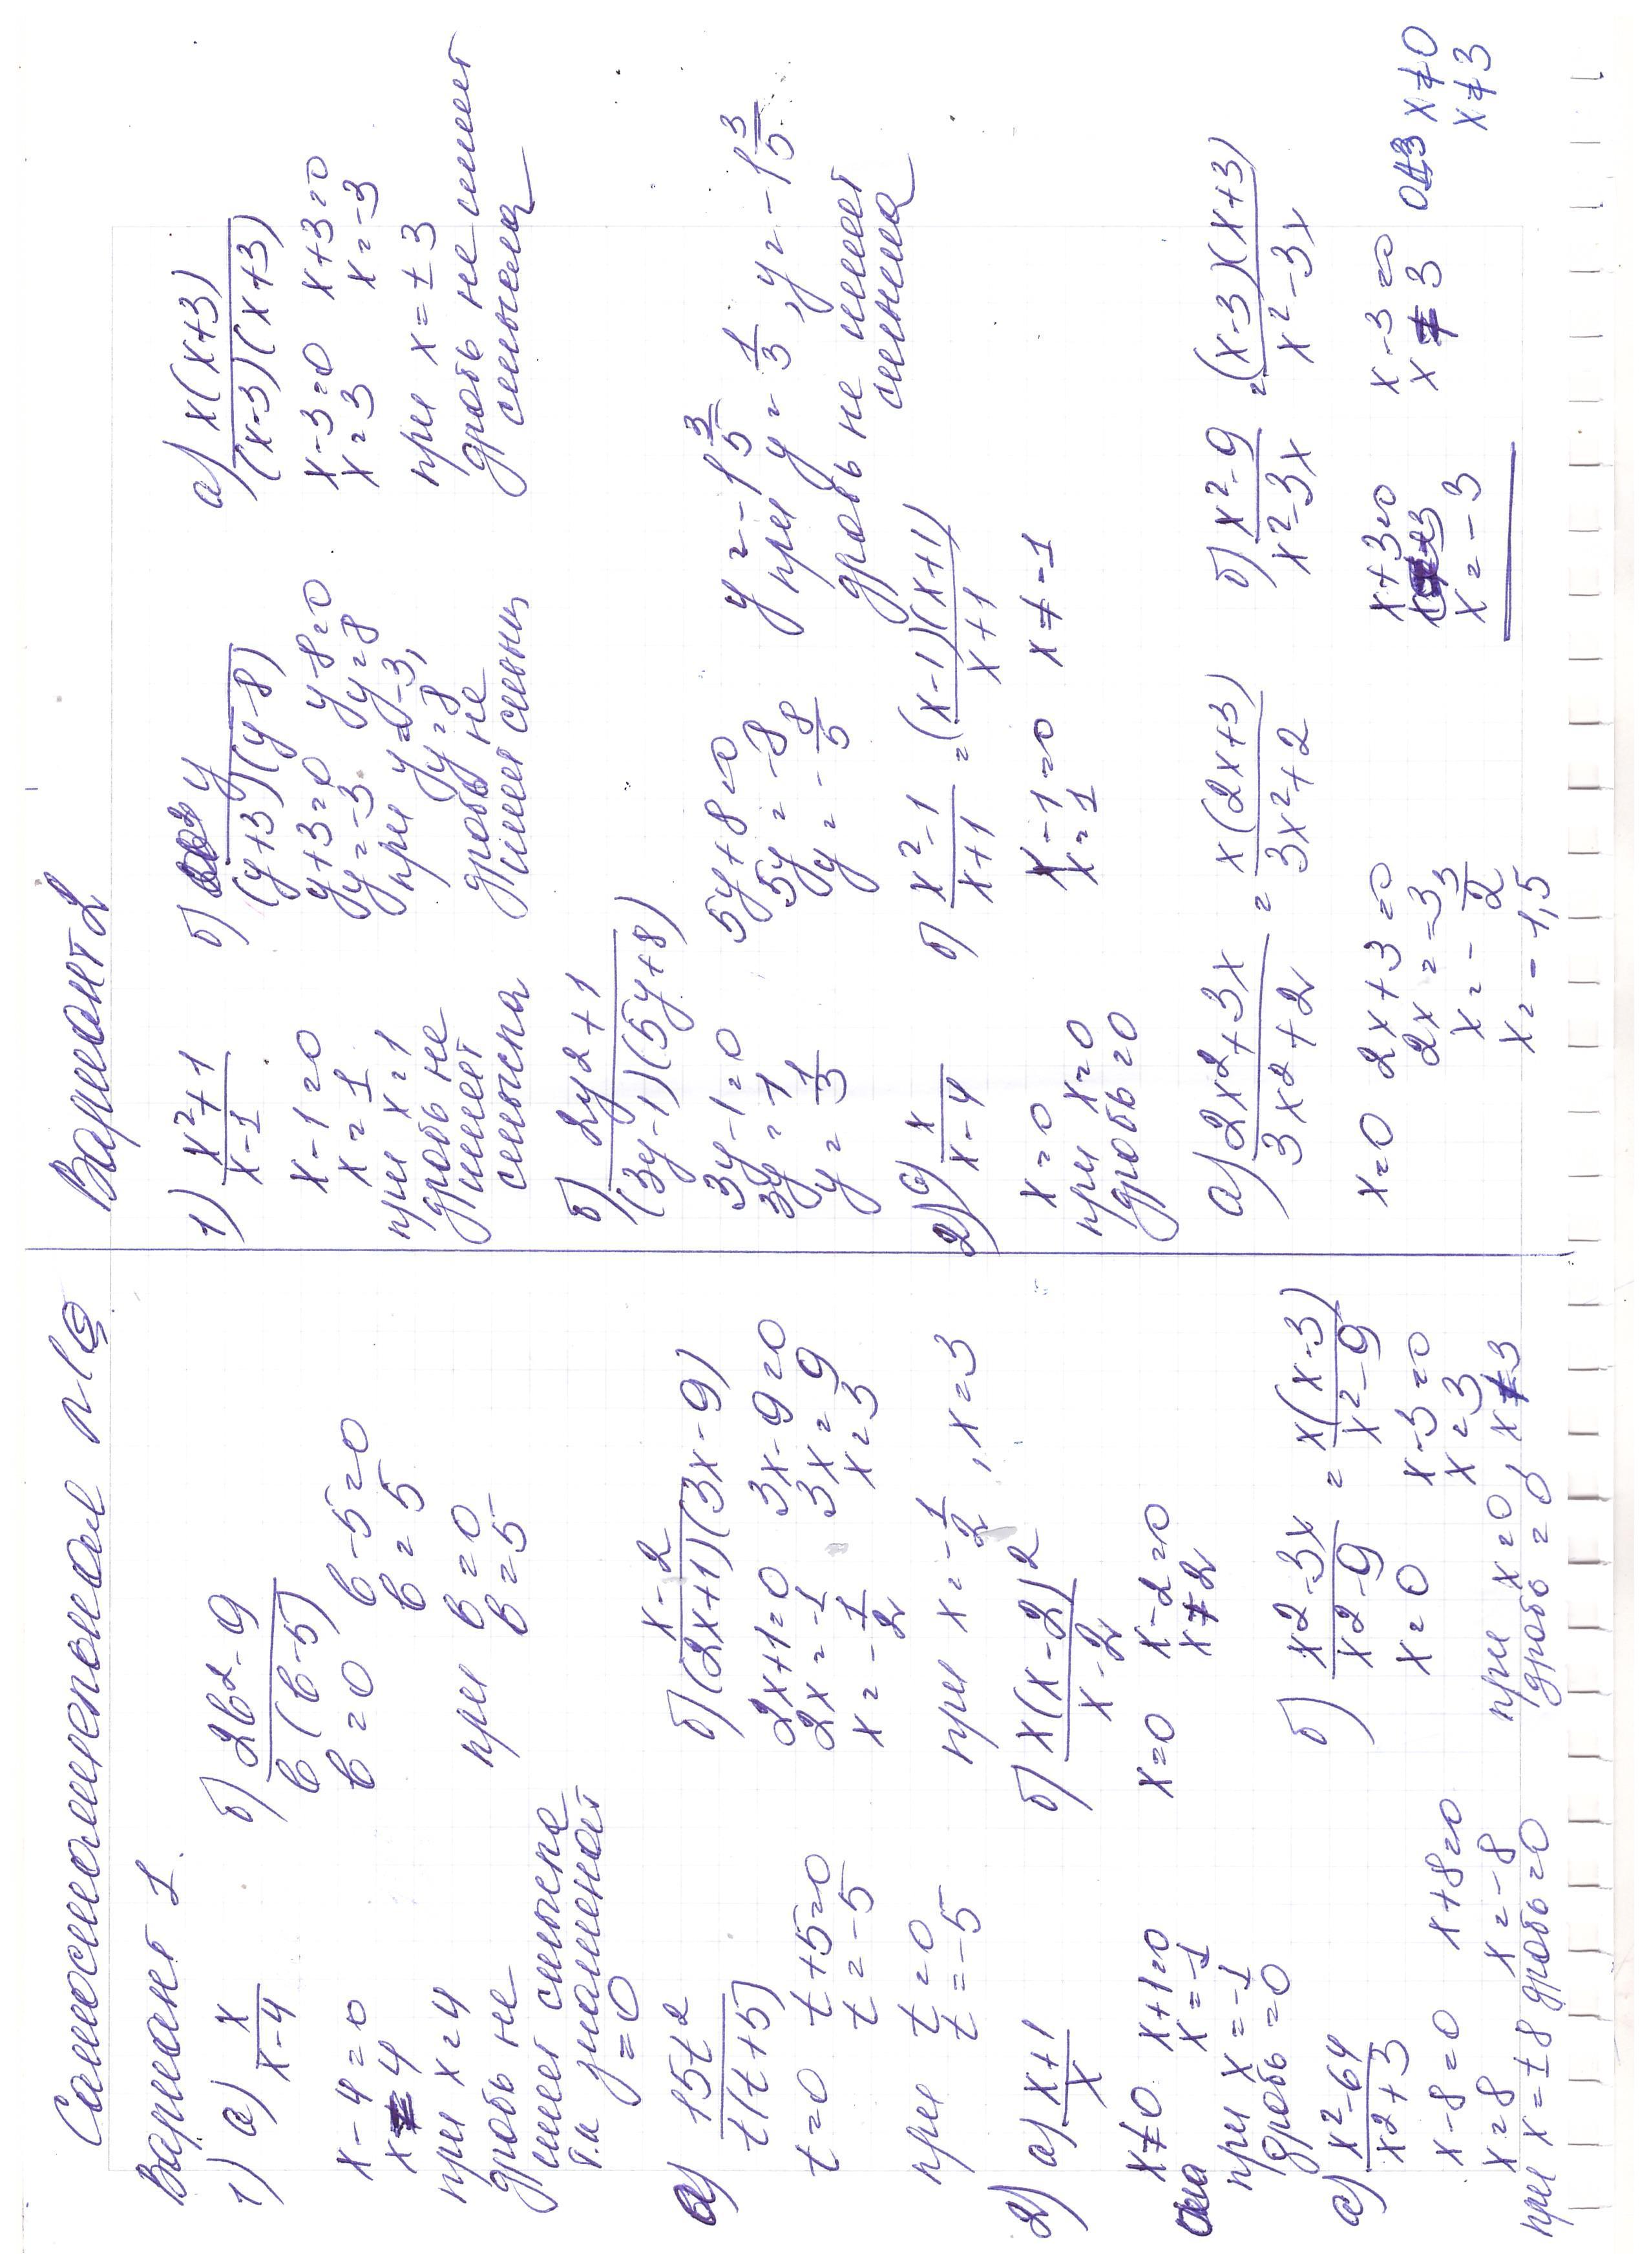 Самостоятельная №2
Вариант 1
1) а) x/(x-4)
x-4=0
x=4
при x=4
дробь не
имеет смысла
т.к знаменат
=0
б) (2b²-9)/(b(b-5))
b=0 b-5=0
b=5
при b=0
b=5
а) 15t²/(t(t+5))
t=0 t+5=0
t=-5
при t=0
t=-5
б) (x-2)/((2x+1)(3x-9))
2x+1=0 3x-9=0
2x=-1 3x=9
x=-1/2 x=3
при x=-1/2, x=3
2) а) (x+1)/x
x≠0 x+1=0
x=-1
при x=-1
дробь=0
б) x(x-2)²/(x-2)
x=0 x-2=0
x≠2
а) (x²-64)/(x²+3)
x-8=0 x+8=0
x=8 x=-8
при x=±8 дробь=0
б) (x²-3x)/(x²-9) = x(x-3)/(x²-9)
x=0 x-3=0
x=3
при x=0, x≠3
дробь=0
Вариант 2
1) (x²+1)/(x-1)
x-1=0
x=1
при x=1
дробь не
имеет
смысла
б) y/((y+3)(y-8))
y+3=0 y-8=0
y=-3 y=8
при y=-3,
y=8
дробь не
имеет смысл
а) x(x+3)/((x-3)(x+3))
x-3=0 x+3=0
x=3 x=-3
при x=±3
дробь не имеет
смысла
б) (2y²+1)/((3y-1)(5y+8))
3y-1=0 5y+8=0
3y=1 5y=-8
y=1/3 y=-8/5
y=-1 3/5
при y=1/3, y=-1 3/5
дробь не имеет
смысла
2) а) x/(x-4)
x=0
при x=0
дробь=0
б) (x²-1)/(x+1) = (x-1)(x+1)/(x+1)
x-1=0 x≠-1
x=1
а) (2x²+3x)/(3x²+2) = x(2x+3)/(3x²+2)
x=0 2x+3=0
2x=-3
x=-3/2
x=-1,5
б) (x²-9)/(x²-3x) = (x-3)(x+3)/(x²-3x)
x+3=0 x-3=0 x≠0
x=-3 x≠3 x≠3